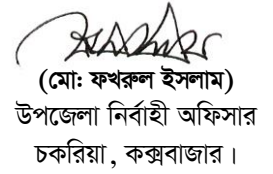 (মো: ফখরুল ইসলাম)
উপজেলা নির্বাহী অফিসার
চকরিয়া, কক্সবাজার।